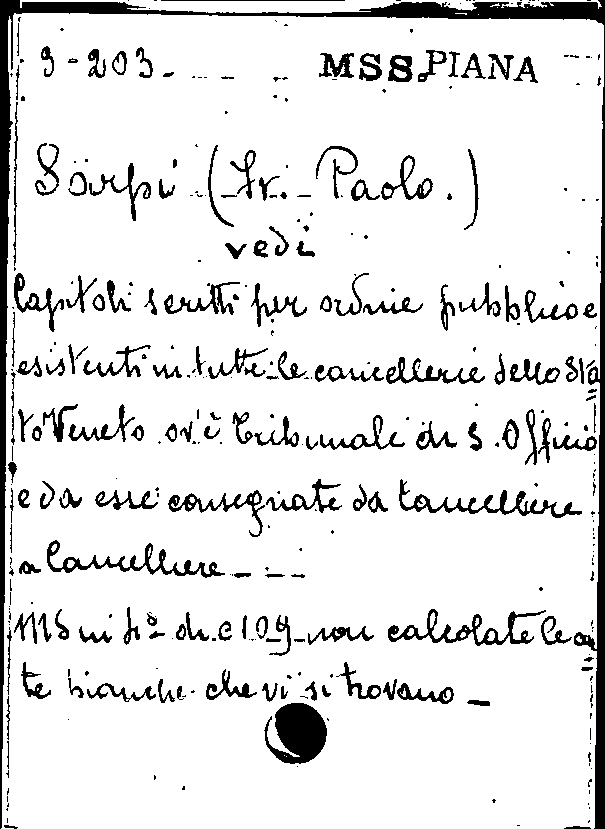 3-203. MSS. PIANA
Sarpi (Fr. Paolo.)
vedi
Capitoli scritti per ordine pubblico e
esistenti in tutte le cancellerie dello Sta
to Veneto ov'è Tribunale di S. Officio
e da esse consegnate da Cancelliere
a Cancelliere _ _ _
MS in fº di c 109 non calcolate le car
te bianche che vi si trovano _